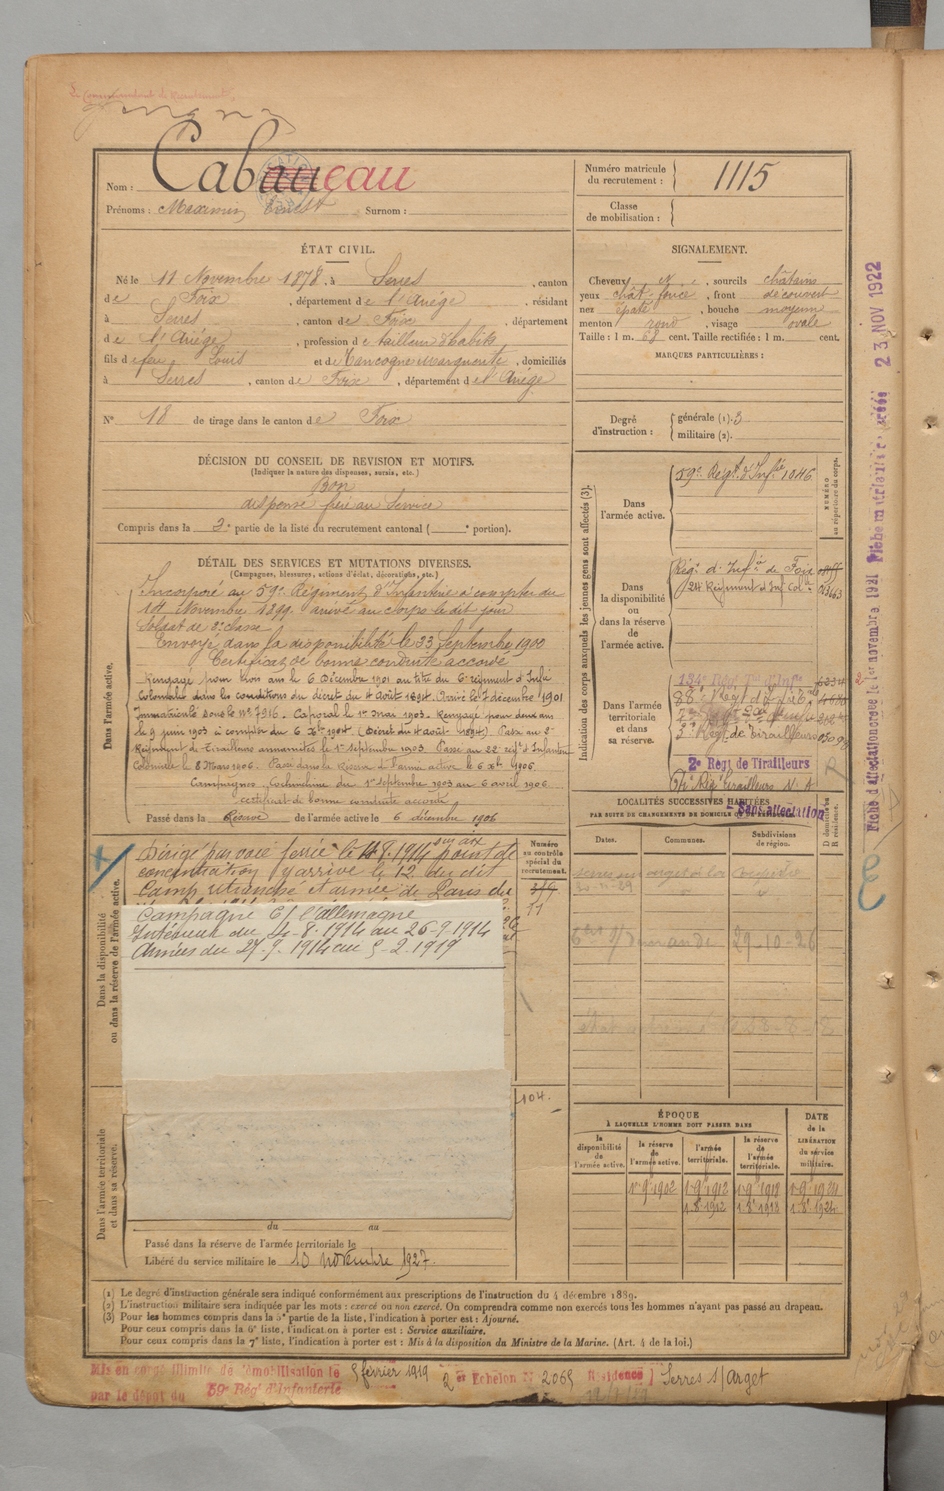 Le Commandant de Recrutement,
Nom : Cabaneau
Prénoms : Maximin Ernest Surnom :
Numéro matricule du recrutement : 1115
Classe de mobilisation :
ÉTAT CIVIL.
Né le 11 Novembre 1878, à Serres, canton
de Foix, département de l'Ariège, résidant
à Serres, canton de Foix, département
de l'Ariège, profession de tailleur d'habits
fils de feu Louis et de Tancogne Marguerite, domiciliés
à Serres, canton de Foix, département de l'Ariège
N° 18 de tirage dans le canton de Foix
SIGNALEMENT.
Cheveux , sourcils châtains
yeux chât. foncé, front découvert
nez épaté, bouche moyenne
menton rond, visage ovale
Taille : 1 m. cent. Taille rectifiée : 1 m. cent.
MARQUES PARTICULIÈRES :
Degré d'instruction :
générale (1). 3
militaire (2).
DÉCISION DU CONSEIL DE REVISION ET MOTIFS.
(Indiquer la nature des dispenses, sursis, etc.)
Bon
dispensé frère au Service
Compris dans la 2e partie de la liste du recrutement cantonal ( e portion).
DÉTAIL DES SERVICES ET MUTATIONS DIVERSES.
(Campagnes, blessures, actions d'éclat, décorations, etc.)
Dans l'armée active.
Incorporé au 59e Régiment d'Infanterie à compter du
14 Novembre 1899 arrivé au corps le dit jour
Soldat de 2e classe
Envoyé dans la disponibilité le 23 Septembre 1900
Certificat de bonne conduite accordé
Rengagé pour trois ans le 6 Décembre 1901 au titre du 6e régiment d'Infie
Coloniale dans les conditions du décret du 4 Août 1894. Arrivé le 7 décembre 1901
Immatriculé sous le N° 7916. Caporal le 1er Mai 1903. Rengagé pour deux ans
le 9 juin 1903 à compter du 6 Xbre 1904 (Décret du 4 août 1894) Passé au 2e
Régiment de Tirailleurs annamites le 1er septembre 1903. Passé au 22e régt d'Infanterie
Coloniale le 8 Mars 1906. Passé dans la Réserve d'armée active le 6 Xbre 1906.
Campagnes. Cochinchine du 1er Septembre 1903 au 6 avril 1906.
certificat de bonne conduite accordé
Passé dans la Réserve de l'armée active le 6 décembre 1906
Indication des corps auxquels les jeunes gens sont affectés (3).
NUMÉRO au répertoire du corps.
Dans l'armée active.
59e Régt d'Infie 1046
Dans la disponibilité ou dans la réserve de l'armée active.
Régt d'Infie de Foix
24e Régiment d'Inf Cole
Dans l'armée territoriale et dans sa réserve.
134e Régt Tal d'Infie
88e Régt d'Infie
3e Régt de Tirailleurs
2e Régt de Tirailleurs
Régt Tirailleurs N. A
Sans affectation
LOCALITÉS SUCCESSIVES HABITÉES
PAR SUITE DE CHANGEMENTS DE DOMICILE OU DE RÉSIDENCE.
Dates. Communes. Subdivisions de région. D domicile ou R résidence.
29-10-26
Dans la disponibilité ou dans la réserve de l'armée active.
Dirigé par voie ferrée le 11.8.1914 sur aix point de
concentration y arrive le 12 du dit
Camp retranché et armée de Paris du
Campagne C/ l'allemagne
Intérieur du 4-8-1914 au 26-9-1914
Armées du 27.9.1914 au 5-2.1919
Numéro au contrôle spécial du recrutement.
11
104.
ÉPOQUE
À LAQUELLE L'HOMME DOIT PASSER DANS
la disponibilité de l'armée active.
la réserve de l'armée active.
l'armée territoriale.
la réserve de l'armée territoriale.
DATE de la LIBÉRATION du service militaire.
1-9-1902 1-9-1912 1-9-1918 1-9-1924
1.8.1912 1.8.1918 1.8.1924
Dans l'armée territoriale et dans sa réserve.
du au
Passé dans la réserve de l'armée territoriale le
Libéré du service militaire le 10 novembre 1927.
(1) Le degré d'instruction générale sera indiqué conformément aux prescriptions de l'instruction du 4 décembre 1889.
(2) L'instruction militaire sera indiquée par les mots : exercé ou non exercé. On comprendra comme non exercés tous les hommes n'ayant pas passé au drapeau.
(3) Pour les hommes compris dans la 5e partie de la liste, l'indication à porter est : Ajourné.
Pour ceux compris dans la 6e liste, l'indication à porter est : Service auxiliaire.
Pour ceux compris dans la 7e liste, l'indication à porter est : Mis à la disposition du Ministre de la Marine. (Art. 4 de la loi.)
Mis en congé illimité de démobilisation le 5 février 1919 2e Echelon N° 2065 Résidence Serres s/Arget
par le dépôt du 59e Régt d'Infanterie
Fiche d'affectation créée le 1er novembre 1921 Fiche matriculaire créée 23 NOV 1922